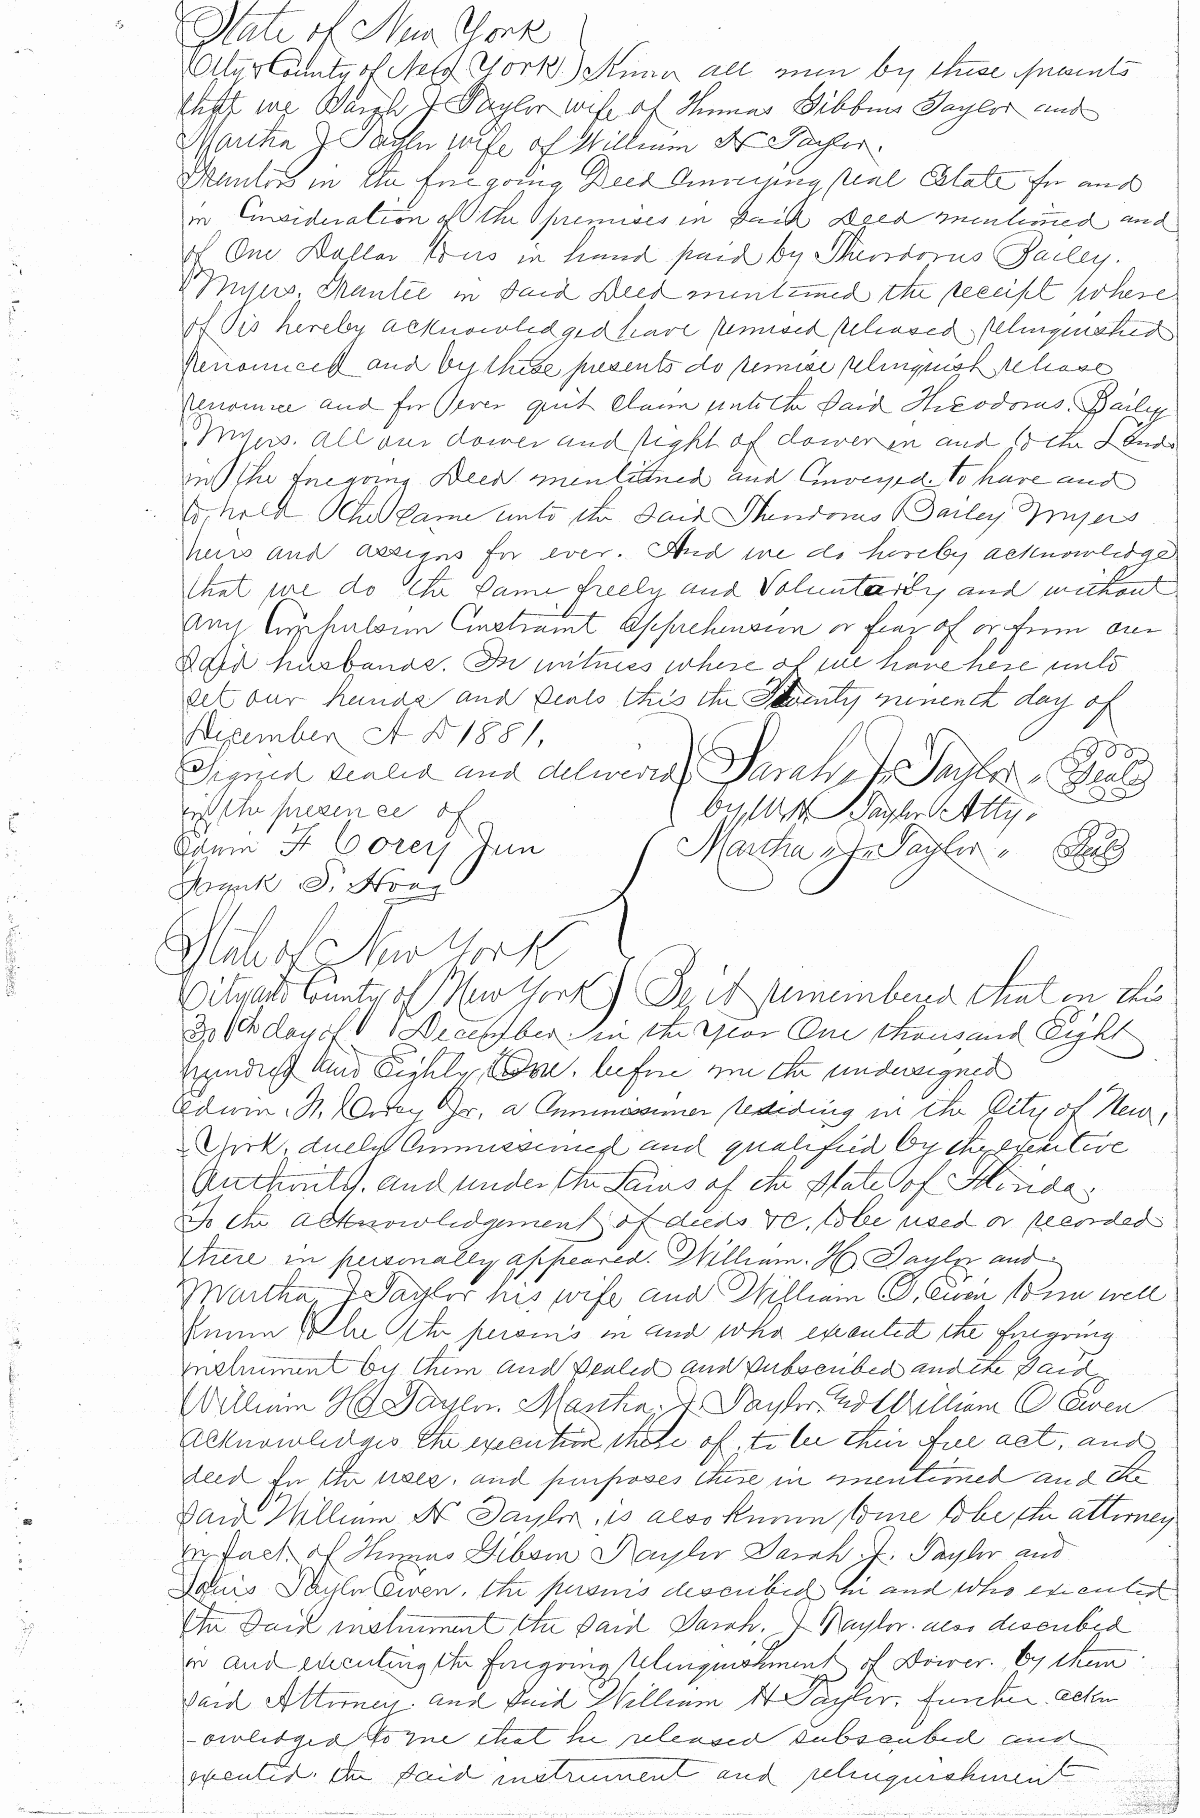 State of New York
City & County of New York) Know all men by these presents
that we Sarah J Taylor wife of Thomas Gibbons Taylor and
Martha J Taylor wife of William H Taylor.
Grantors in the fore going Deed Conveying real Estate for and
in Consideration of the premises in said Deed mentioned and
of One Dollar to us in hand paid by Theordorus Bailey.
Myers. Grantee in said Deed mentioned the receipt where
of is hereby acknowledged have remised released relinquished
renounced and by these presents do remise relinquish release
renounce and for ever quit claim unto the said Theodorus. Bailey
Myers. all our dower and right of dower in and to the Lands
in the foregoing Deed mentioned and Conveyed. to have and
to hold the same unto the said Theodorus Bailey Myers
heirs and assigns for ever. And we do hereby acknowledge
that we do the same freely and Voluntarily and without
any Compulsion Constraint apprehension or fear of or from our
said husbands. In witness where of we have here unto
set our hands and seals this the Twenty nineth day of
December A D 1881.
Signed sealed and delivered) Sarah, J. Taylor. Seal
in the presence of by, W H Taylor Atty.
Edwin F Corey Jun Martha. J. Taylor. Seal
Frank S. Hoag
State of New York
City and County of New York) Be it remembered that on this
30th day of December. in the year One thousand Eight
hundred and Eighty One. before me the undersigned
Edwin. F. Corey Jr. a Commissioner residing in the City of New,
York, duely Commissioned and qualified by the executive
Authority. and under the Laws of the State of Florida.
To the acknowledgement of deeds &c. to be used or recorded
there in personally appeared. William. H Taylor and
Martha J Taylor his wife and William O. Ewen to me well
known to be the persons in and who executed the foregoing
instrument by them and sealed and subscribed and the said
William H Taylor. Martha. J. Taylor. and William O Ewen
acknowledges the execution there of. to be their free act. and
deed for the uses. and purposes there in mentioned and the
said William H Taylor. is also known to me to be the attorney
in fact. of Thomas Gibson Taylor Sarah. J. Taylor and
Louis Taylor Ewen. the persons described in and who executed
the said instrument the said Sarah. J Taylor. also described
in and executing the foregoing relinquishment of Dower. by them
said Attorney. and said William H Taylor. further ackn
-owledged to me that he released subscribed and
executed. the said instrument and relinquishment